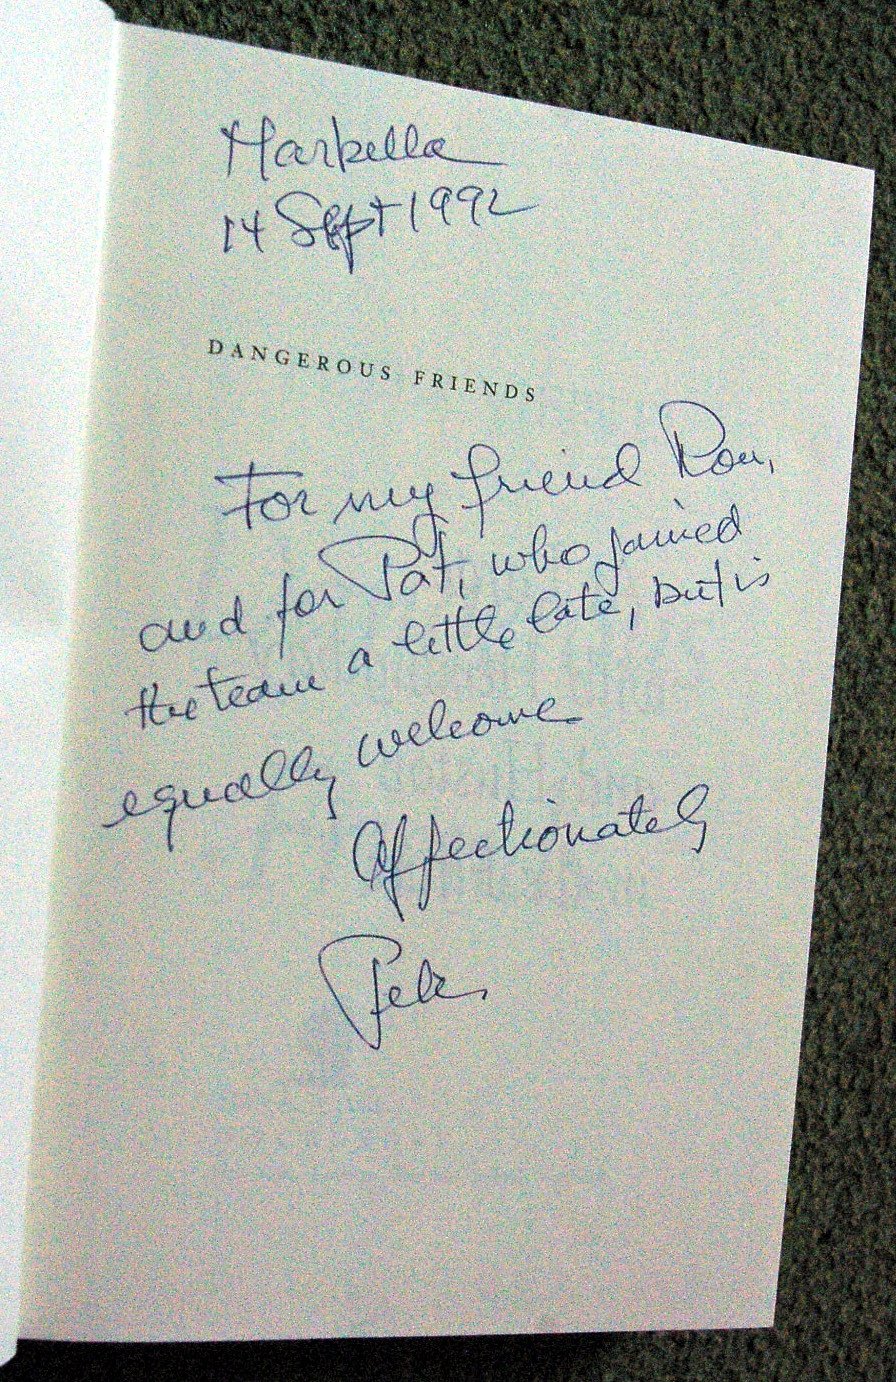 Marbella
14 Sept 1992
DANGEROUS FRIENDS
For my friend Ron,
and for Pat, who joined
the team a little late, but is
equally welcome
Affectionately
Peter